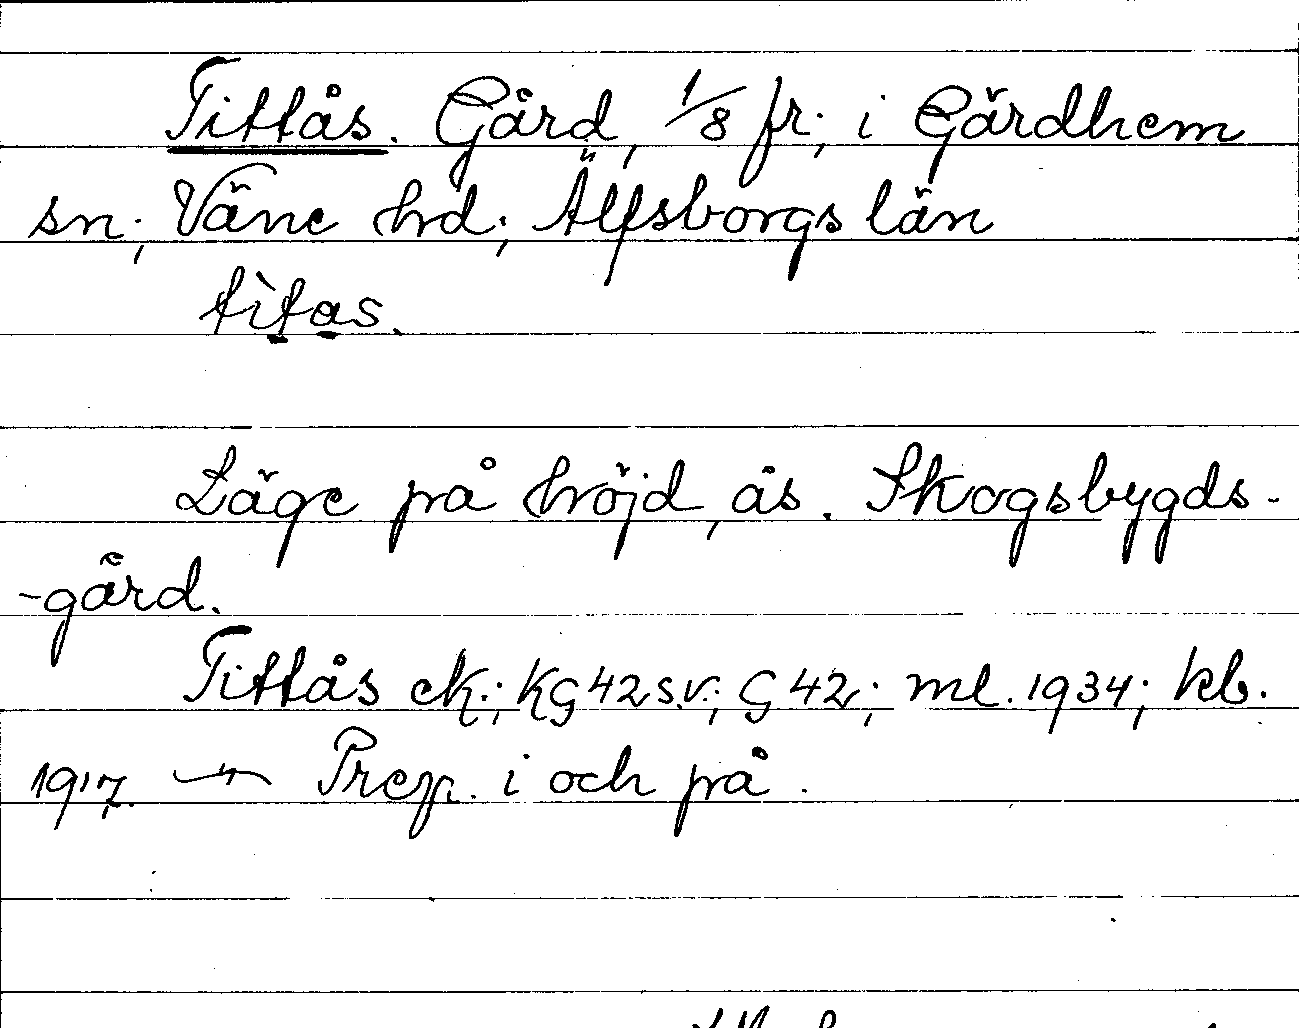 Tittås. Gård, 1/8 fr; i Gärdhem
sn; Väne hd; Älfsborgs län
tìtas.
Läge på höjd, ås. Skogsbygds-
-gård.
Tittås ek.; KG42sv; G42; ml. 1934; kb.
1917. — Prep. i och på.